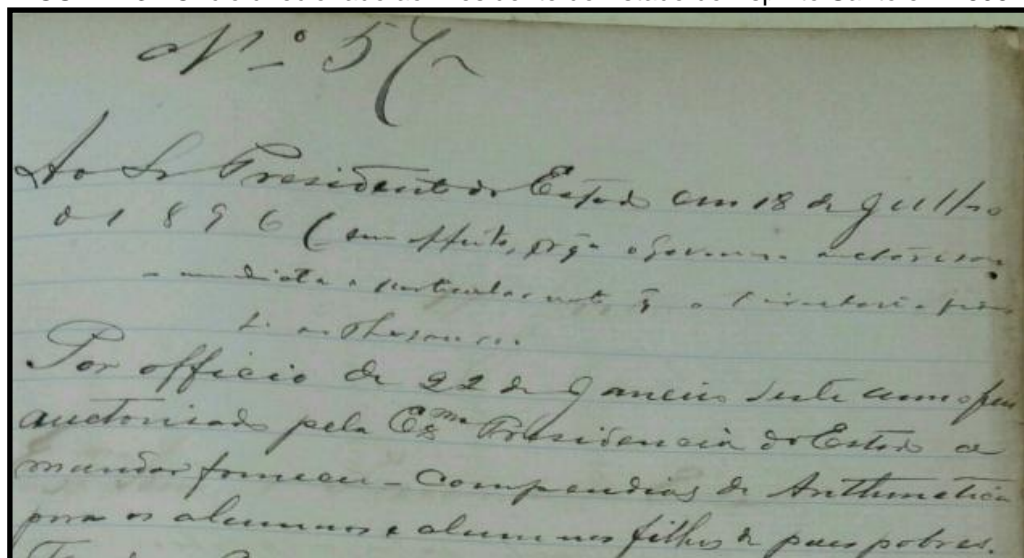 Nº 57
Ao Sr Presidente do Estado em 18 de Julho
de 1896 (sem effeito, pr qe o Governo auctorisou
immediata e particularmente, q a
Por officio de 22 de Janeiro deste anno fui
auctorisado pela Exma Presidencia do Estado a
mandar fornecer - Compendios de Arithmetica
para os alumnos e alumnas filhos de paes pobres.